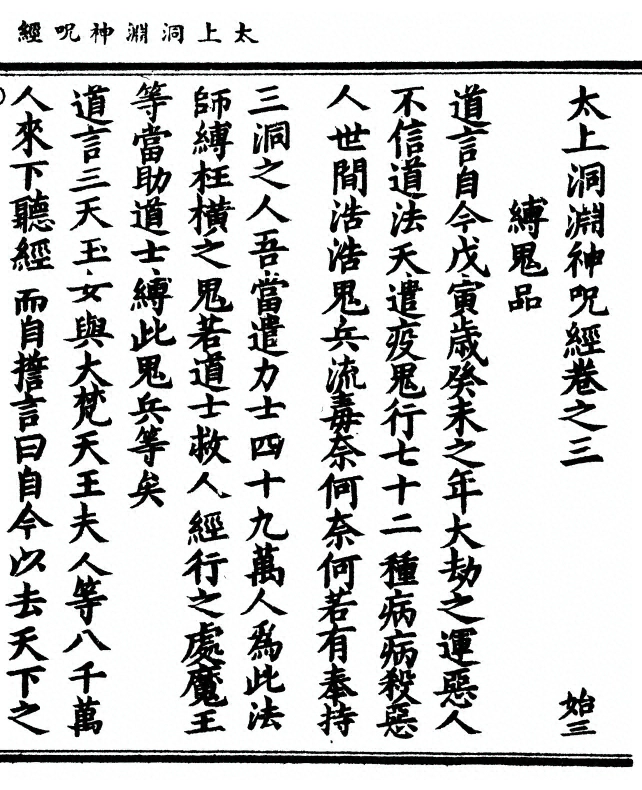 太上洞淵神呪經
太上洞淵神呪經卷之三 始三
縛鬼品
道言自今戊寅歲癸未之年大劫之運惡人
不信道法天遣疫鬼行七十二種病病殺惡
人世間浩浩鬼兵流毒奈何奈何若有奉持
三洞之人吾當遣力士四十九萬人爲此法
師縛枉橫之鬼若道士救人經行之處魔王
等當助道士縛此鬼兵等矣
道言三天玉女與大梵天王夫人等八千萬
人來下聽經而自誓言曰自今以去天下之